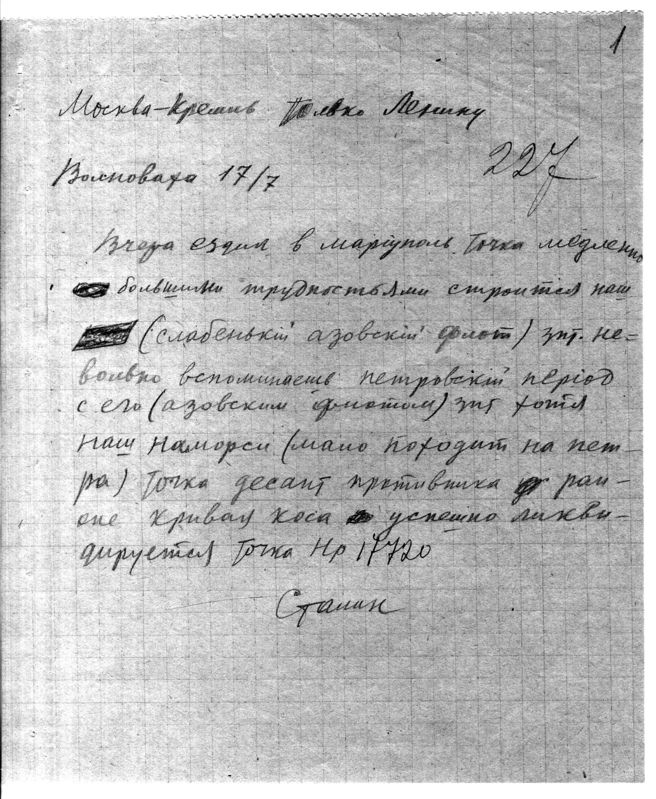 1
Москва-Кремль Только Ленину
Волноваха 17/7
227
Вчера ездил в маріуполь точка медленно
большими трудностьями строится наш
(слабенькій азовскій флот) зпт. не=
вольно вспоминаешь петровскій період
с его (азовским флотом) зпт хотя
наш наморси (мало походит на пет-
ра) точка десант противника в рай-
оне кривая коса успешно ликви-
дируется точка Нр 17720
Сталин